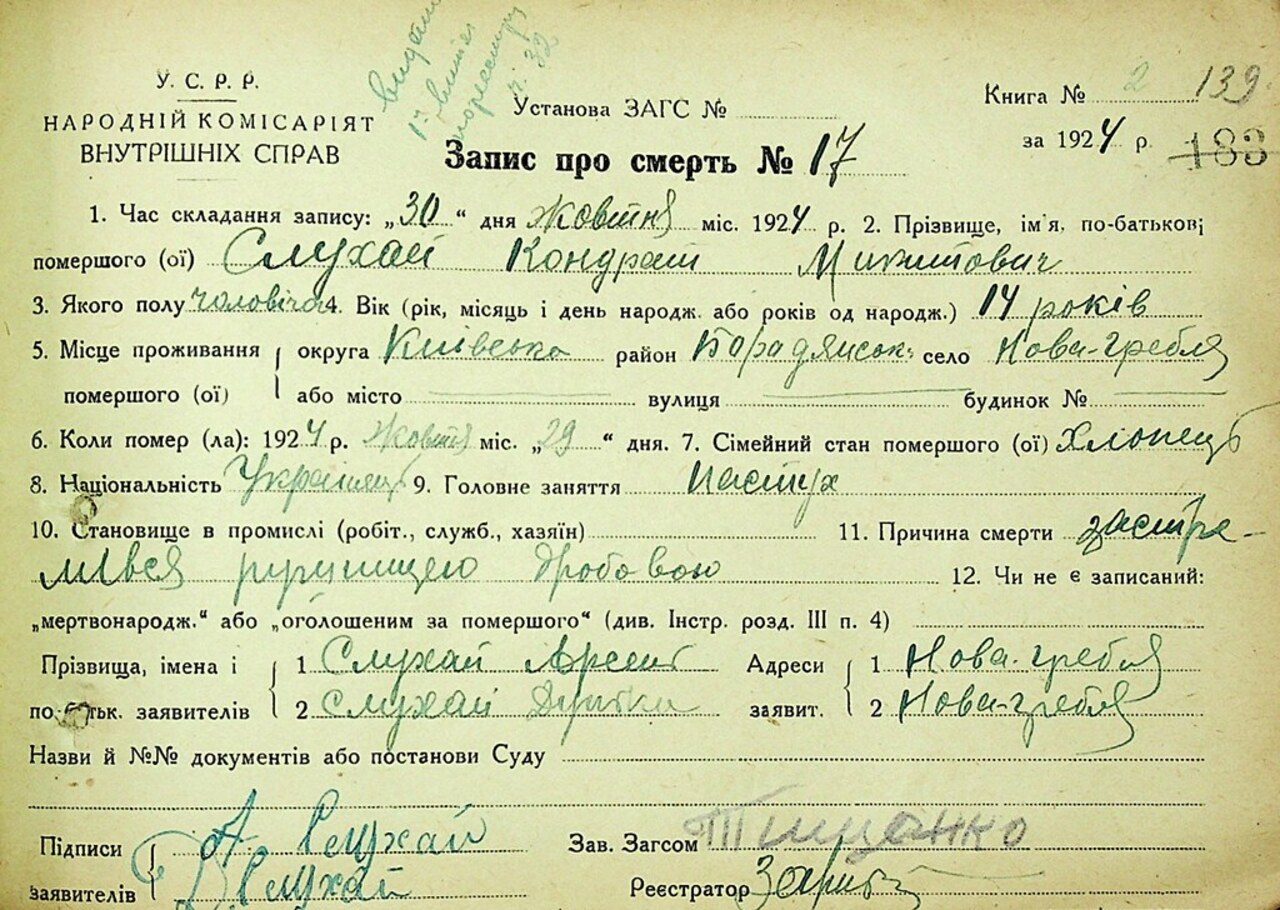 У. С. Р. Р.
НАРОДНІЙ КОМІСАРІЯТ
ВНУТРІШНІХ СПРАВ
ч. 32
Установа ЗАГС №
Книга № 2 139
за 1924 р. 183
Запис про смерть № 17
1. Час складання запису: „30“ дня Жовтня міс. 1924 р. 2. Прізвище, ім'я, по-батькові
помершого (ої) Слухай Кондрат Микитович
3. Якого полу чоловічо 4. Вік (рік, місяць і день народж. або років од народж.) 14 років
5. Місце проживання округа Київсько район Бородянськ. село Нова-гребля
помершого (ої) або місто вулиця будинок №
6. Коли помер (ла): 1924 р. Жовтня міс. „29“ дня. 7. Сімейний стан помершого (ої) Хлопець
8. Національність Українець 9. Головне заняття Пастух
10. Становище в промислі (робіт., служб., хазяїн) 11. Причина смерти застре-
лився ружницею дробовою 12. Чи не є записаний:
„мертвонародж.“ або „оголошеним за помершого“ (див. Інстр. розд. III п. 4)
Прізвища, імена і 1 Слухай Арсент Адреси 1 Нова-гребля
по-батьк. заявителів 2 Слухай заявит. 2 Нова-гребля
Назви й №№ документів або постанови Суду
Підписи А Слухай Зав. Загсом Тищенко
заявителів Д Слухай Реєстратор